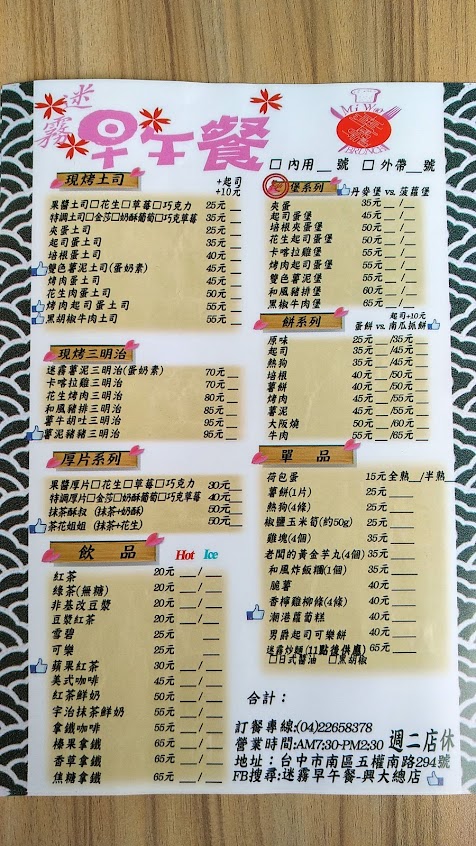 迷霧早午餐
Mi Woo
BRUNCH
□內用__號 □外帶__號
現烤土司
+起司
+10元
果醬土司□花生□草莓□巧克力 25元
特調土司□金莎□奶酥葡萄□巧克草莓 35元
夾蛋土司 25元
起司蛋土司 35元
培根蛋土司 40元
雙色薯泥土司(蛋奶素) 45元
烤肉蛋土司 45元
花生肉蛋土司 50元
烤肉起司蛋土司 55元
黑胡椒牛肉土司 55元
現烤三明治
迷霧薯泥三明治(蛋奶素) 70元
卡喀拉雞三明治 70元
花生烤肉三明治 80元
和風豬排三明治 85元
薯牛胡吐三明治 95元
薯泥豬豬三明治 95元
厚片系列
果醬厚片□花生□草莓□巧克力 30元
特調厚片□金莎□奶酥葡萄□巧克草莓 40元
抹茶酥叔 (抹茶+奶酥) 50元
茶花姐姐 (抹茶+花生) 50元
飲品
Hot Ice
紅茶 20元 __/__
綠茶(無糖) 20元 __/__
非基改豆漿 20元 __/__
豆漿紅茶 20元 __/__
雪碧 25元 __
可樂 25元 __
蘋果紅茶 30元 __/__
美式咖啡 45元 __/__
紅茶鮮奶 50元 __/__
宇治抹茶鮮奶 55元 __/__
拿鐵咖啡 55元 __/__
榛果拿鐵 65元 __/__
香草拿鐵 65元 __/__
焦糖拿鐵 65元 __/__
堡系列
丹麥堡 vs. 菠蘿堡
夾蛋 35元
起司蛋堡 45元
培根夾蛋堡 50元
花生起司蛋堡 50元
卡喀拉雞堡 55元
烤肉起司蛋堡 55元
雙色薯泥堡 55元
和風豬排堡 60元
黑椒牛肉堡 65元
餅系列
起司+10元
蛋餅 vs. 南瓜抓餅
原味 25元 __/35元 __
起司 35元 __/45元 __
熱狗 35元 __/45元 __
培根 40元 __/50元 __
薯餅 40元 __/50元 __
烤肉 45元 __/55元 __
薯泥 45元 __/55元 __
大阪燒 50元 __/60元 __
牛肉 55元 __/65元 __
單品
荷包蛋 15元 全熟__/半熟__
薯餅(1片) 25元
熱狗(4條) 25元
椒鹽玉米筍(約50g) 25元
雞塊(4個) 35元
老闆的黃金芋丸(4個) 35元
和風炸飯糰(1個) 35元
脆薯 40元
香檸雞柳條(4條) 40元
潮港蘿蔔糕 40元
男爵起司可樂餅 40元
迷霧炒麵(11點後供應) 65元
□日式醬油 □黑胡椒
合計：
訂餐專線:(04)22658378
營業時間:AM7:30-PM2:30 週二店休
地址：台中市南區五權南路294號
FB搜尋:迷霧早午餐-興大總店